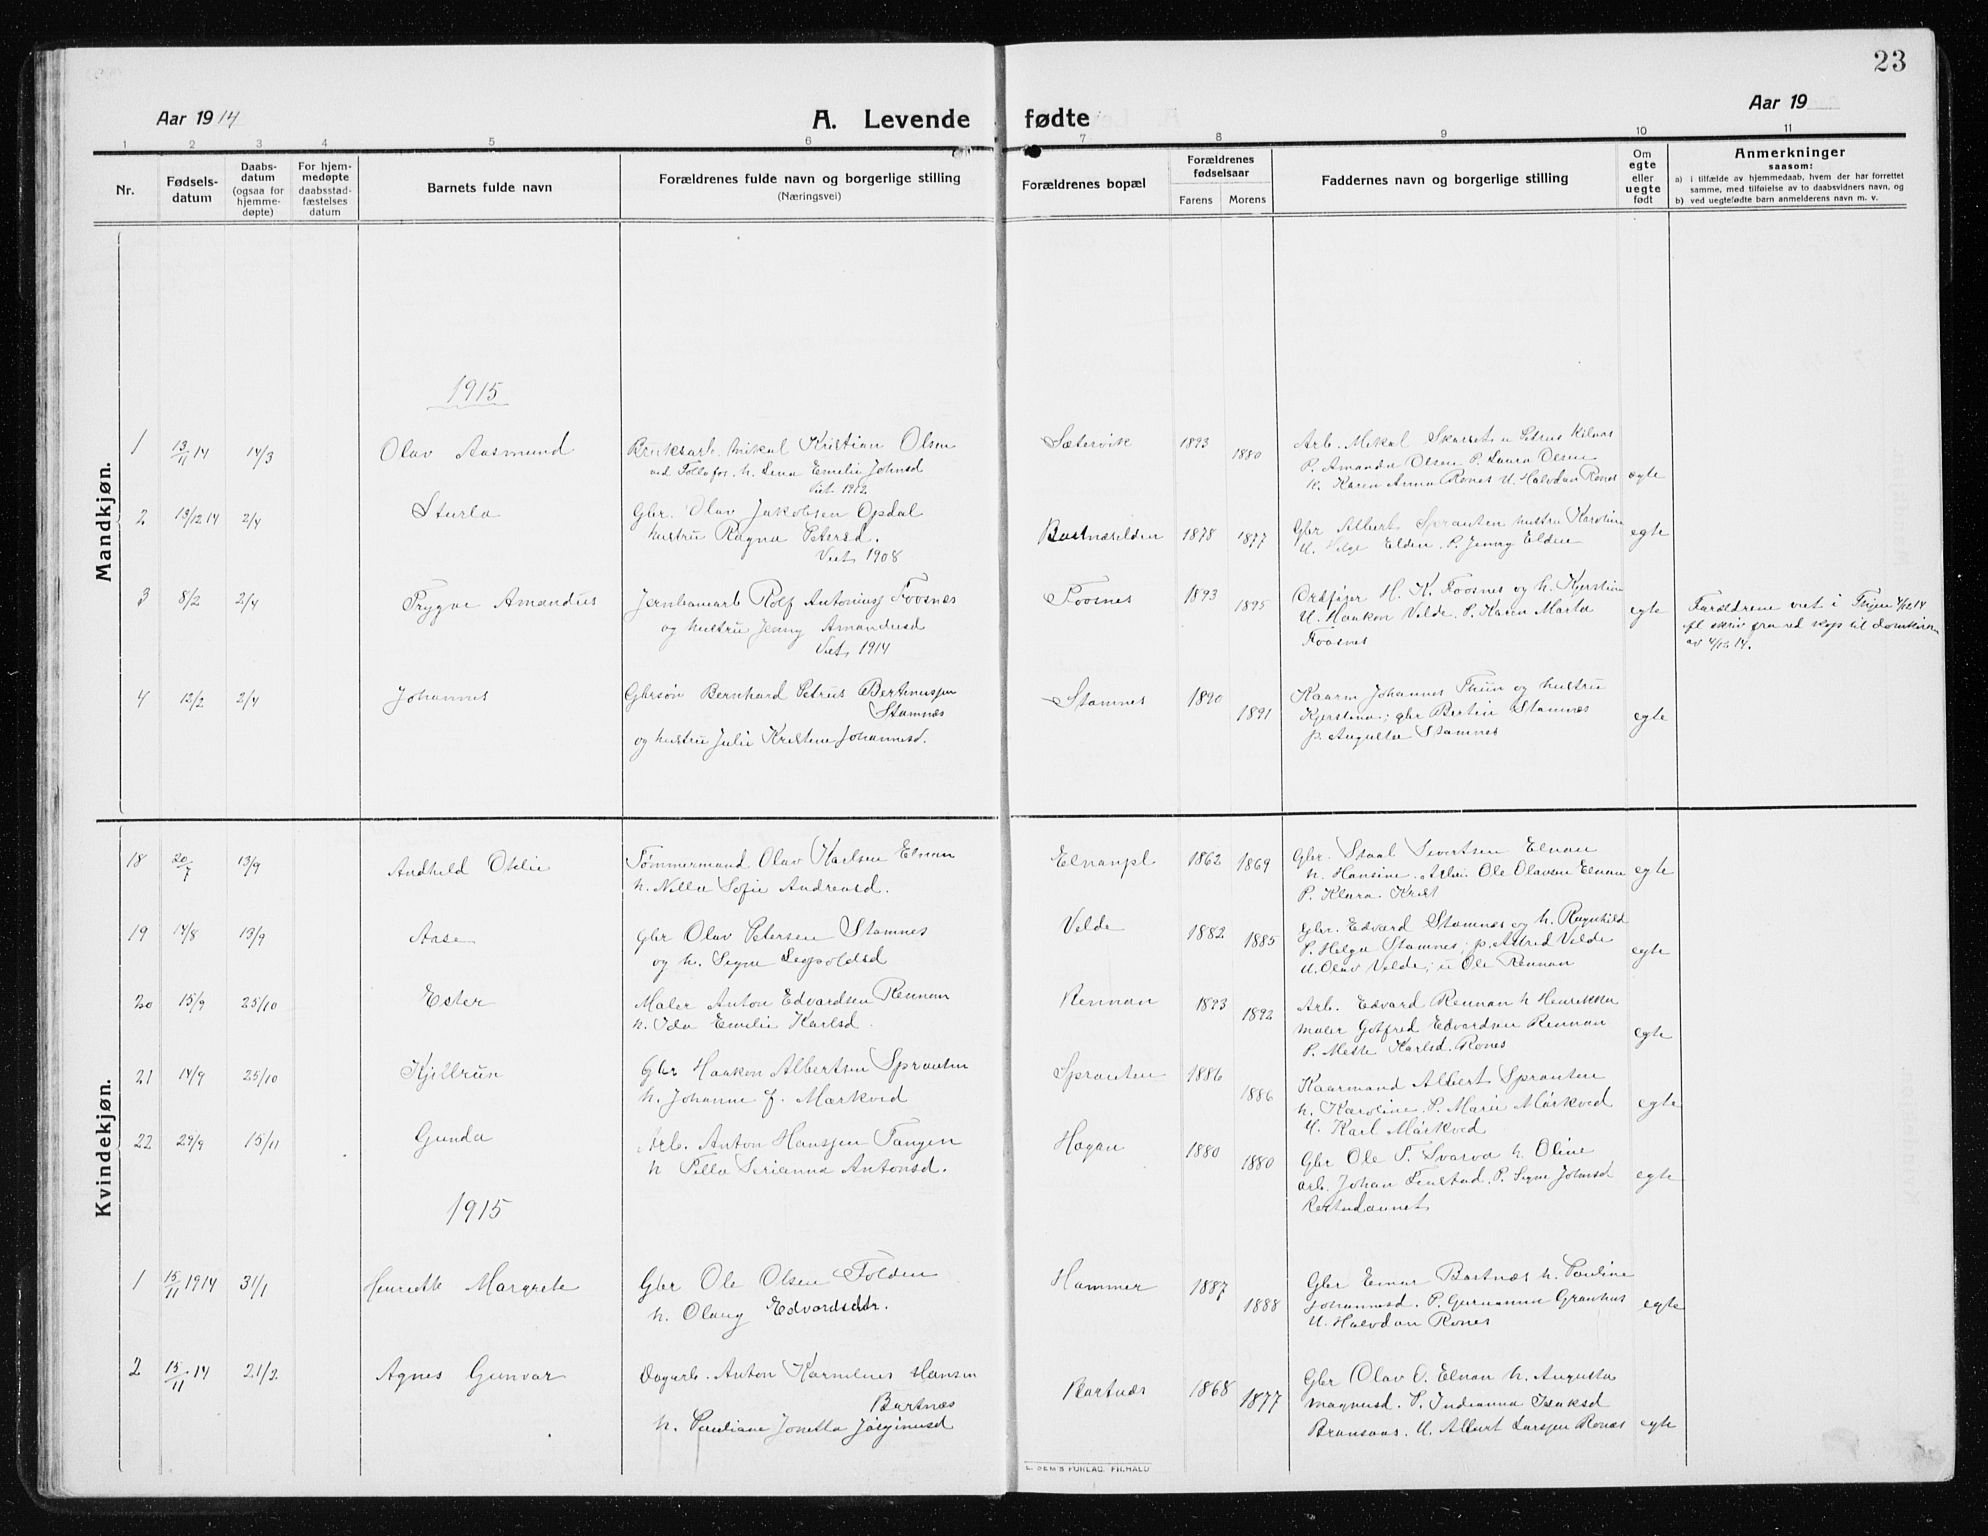 23
Aar 1914
A. Levende fødte
Aar 19
1 2 3 4 5 6 7 8 9 10 11
Nr.
Fødsels-
datum
Daabs-
datum
(ogsaa for
hjemme-
døpte)
For hjem-
medøpte
daabsstad-
fæstelses
datum
Barnets fulde navn
Forældrenes fulde navn og borgerlige stilling
(Næringsvei)
Forældrenes bopæl
Forældrenes
fødselsaar
Farens Morens
Faddernes navn og borgerlige stilling
Om
egte
eller
uegte
født
Anmerkninger
saasom:
a) i tilfælde av hjemmedaab, hvem der har forrettet
samme, med tilføielse av to daabsvidners navn, og
b) ved uegtefødte barn anmelderens navn m. v.
Mandkjøn.
1915
1 13/11 14 14/3 Olav Aasmund
Bruksarb. Mikal Kristian Olsen
ved Follafos. h. Lena Emelie Johnsd
Viet 1912
Sætervik 1893 1880
Arb. Mikal Skarset u Petrus
P. Amanda Olsen P. Laura Olsen
K. Karen Anna Rones U. Halvdan Rones
egte
2 13/12 14 2/4 Sturla
Gbr. Olav Jakobsen Opdal
hustru Ragna Petersd.
Viet 1908
Bartnæselden 1878 1877
Gbr Albert Sprauten hustru Karoline
U. Helge Elden. P. Jenny Elden
egte
3 8/2 2/4 Trygve Amandus
Jernbanearb Rolf Antoniusj Foosnes
og hustru Jenny Amandusd
Viet 1914
Foosnes 1893 1895
Ordfører H. K. Foosnes og h. Kjerstine
U. Haakon Velde. P. Karen Marta
Foosnes
egte
Forældrene viet i 4/12 14
av 4/12 14.
4 12/2 2/4 Johannes
Gbrsøn Bernhard Petrus Bertinussen
Stamnes
og hustru Julie Kristine Johannesd.
Stamnes 1890 1891
Kaarm Johannes Thiin og hustru
Kjerstina; gbr Bertin Stamnes
p. Augusta Stamnes
egte
Kvindekjøn.
18 20/7 13/9 Audhild Otelie
Tømmermand Olav Karlsen Elnan
h. Nilla Sofie Andreasd.
Elnanpl 1862 1869
Gbr. Staal Sivertsen Elnan
h. Hansine. Ole Olavsen Elnan
P. Klara Krist
egte
19 14/8 13/9 Aase
Gbr Olav Petersen Stamnes
og h. Signe Leopoldsd
Velde 1882 1885
Gbr. Edvard Stamnes og h. Ragnhild
P. Helga Stamnes; p. Astrid Velde
U. Olav Velde; u Ole Rennan
egte
20 15/9 25/10 Ester
Maler Anton Edvardsen Rennan
h. Ida Emelie Karlsd.
Rennan 1893 1892
Arb. Edvard Rennan h Henrikka
maler Gotfred Edvardsen Rennan
P. Mette Karlsd. Rones
egte
21 14/9 25/10 Kjellrun
Gbr Haakon Albertsen Sprauten
h. Johanne f. Mærkved
Sprauten 1886 1886
Kaarmand Albert Sprauten
h. Karoline. P. Marie Mörkved
U. Karl Mörkved
egte
22 29/9 15/11 Gunda
Arb. Anton Hansjen Tangen
h Pella Serianna Antonsd.
Hagan 1880 1880
Gbr Ole T. Svarva h. Oline
arb. Johan Finstad. P. Signe Johnsd
egte
1915
1 15/11 1914 31/1 Henriette Margrete
Gbr Ole Olsen Folden
h. Olaug Edvardsdtr.
Hammer 1887 1888
Gbr Einar Bartnæs h. Pauline
Johannesd. P. Granhus
U. Halvdan Rones
egte
2 15/11 14 21/2 Agnes Gunvor
Dagarb. Anton Kornelius Hansen
Bartnæs
h. Pauliane Jonetta
Bartnæs 1868 1877
Gbr Olav O. Elnan h. Augusta
Magnusd. P. Indianna Isaksd
Bransaas. U. Albert Larsjen Rones
egte
E. SEM'S FORLAG, FR.HALD